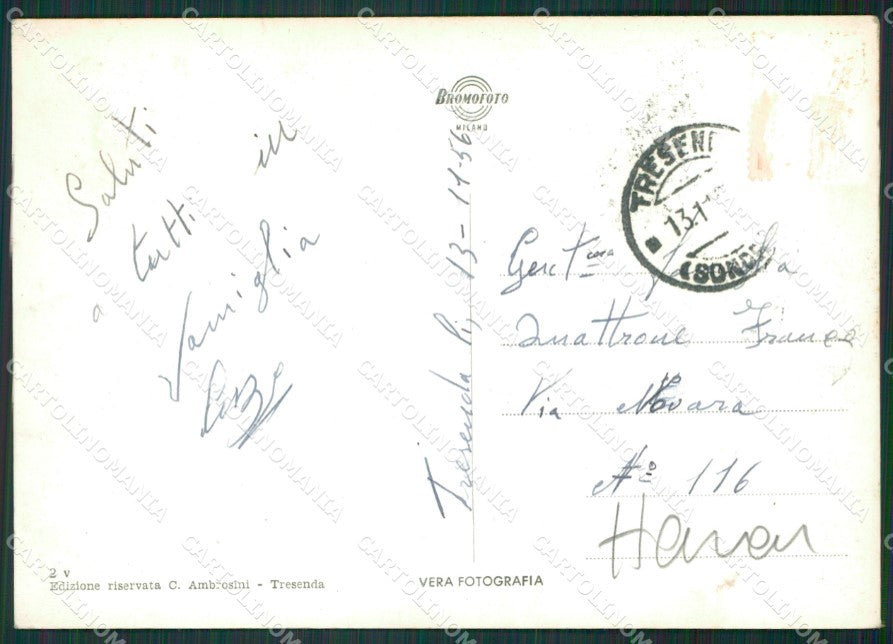 BROMOFOTO
MILANO
Saluti
a tutti in
Famiglia
Tresenda li, 13-11-56
TRESEN
13.1
(SOND
Gent.ma
Quattrone Franco
Via Novara
N° 116
2 v
Edizione riservata C. Ambrosini - Tresenda
VERA FOTOGRAFIA
CARTOLINOMANIA